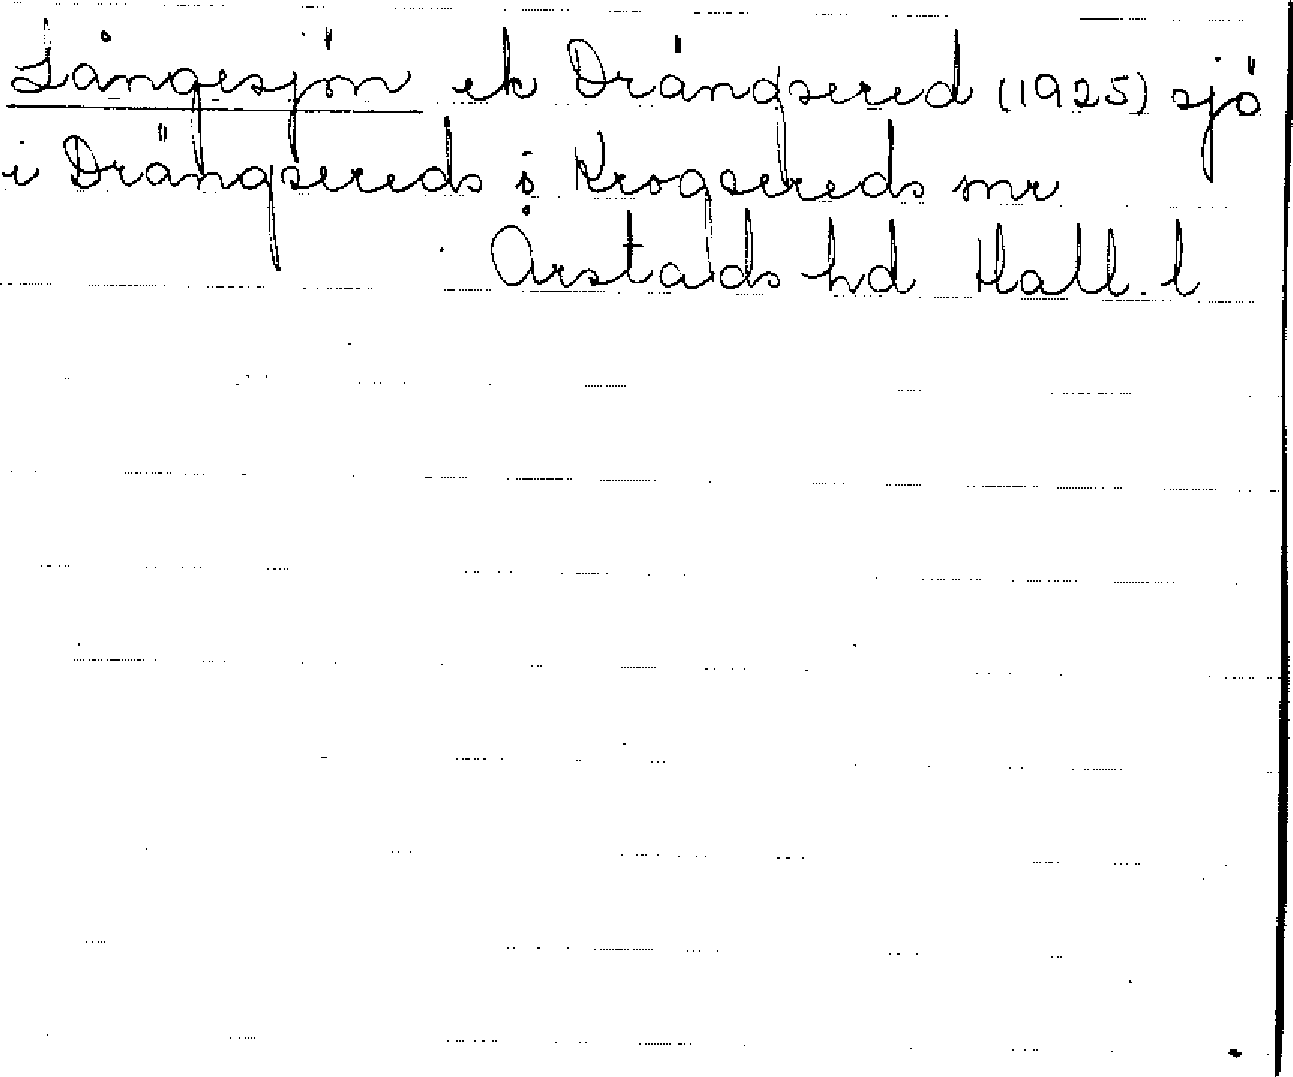 Långesjön ek Drängsered (1925) sjö
i Drängsereds o Krogsereds snr
Årstads hd Hall. l